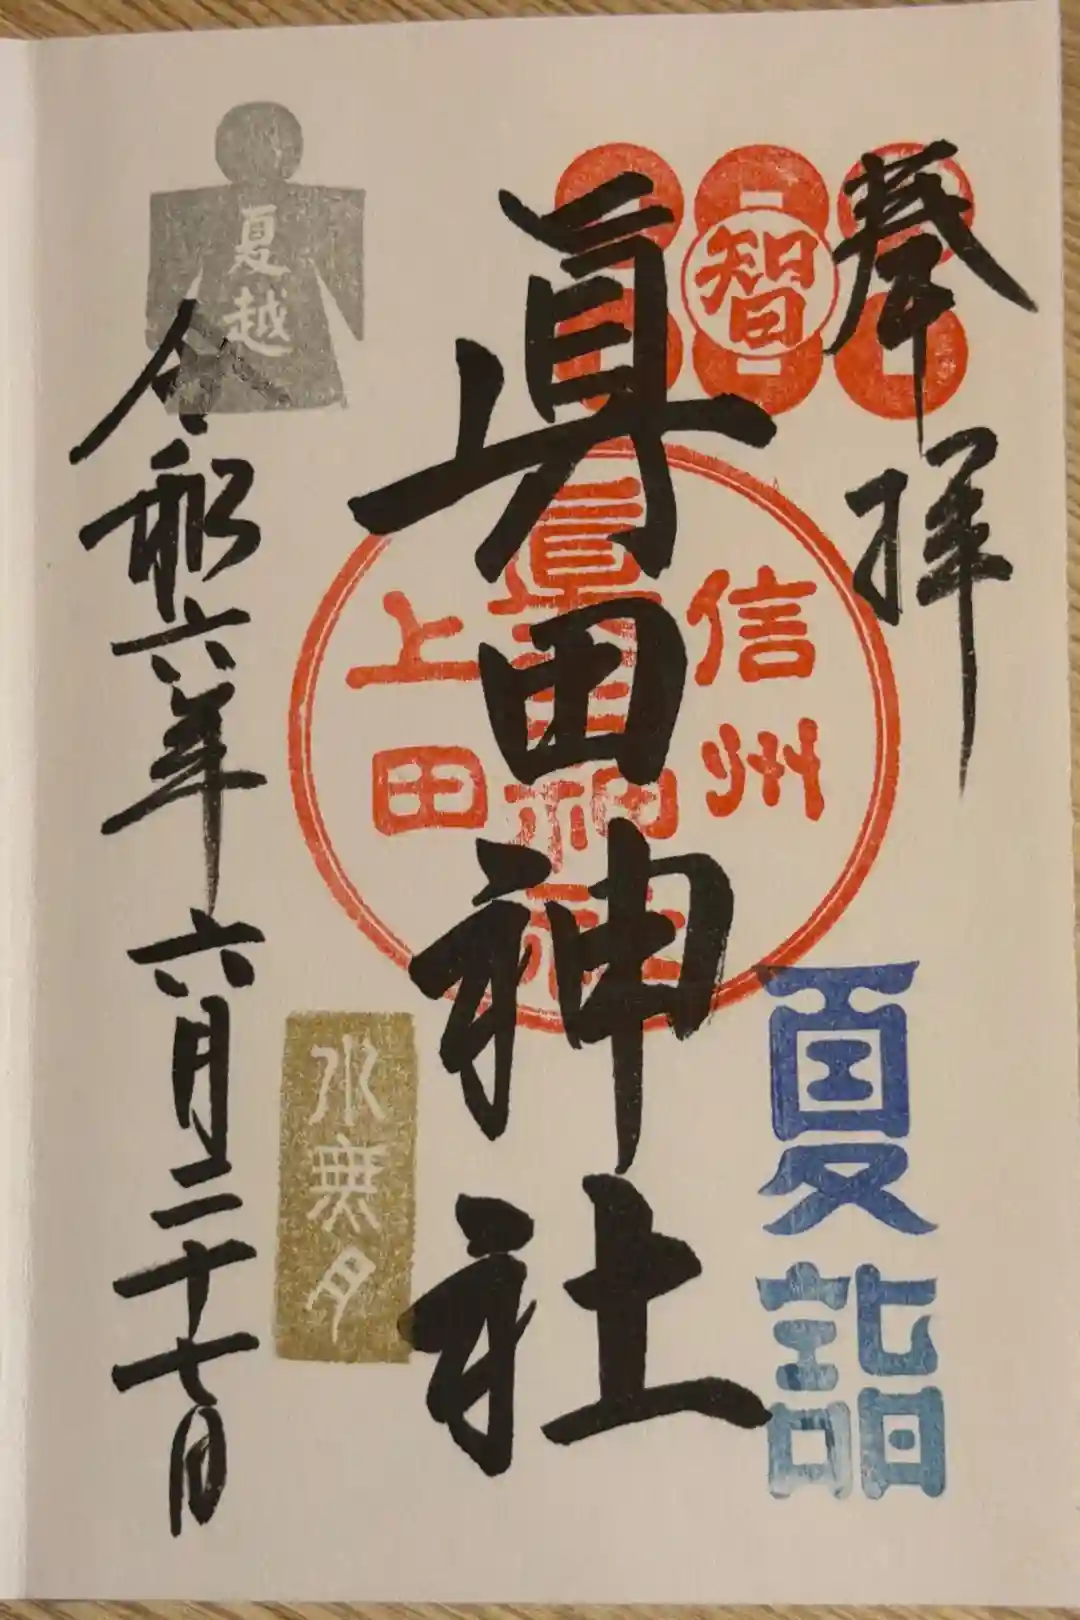 奉拝
智
夏詣
眞田神社
信州
眞田神社
上田
水無月
夏越
令和六年六月二十七日